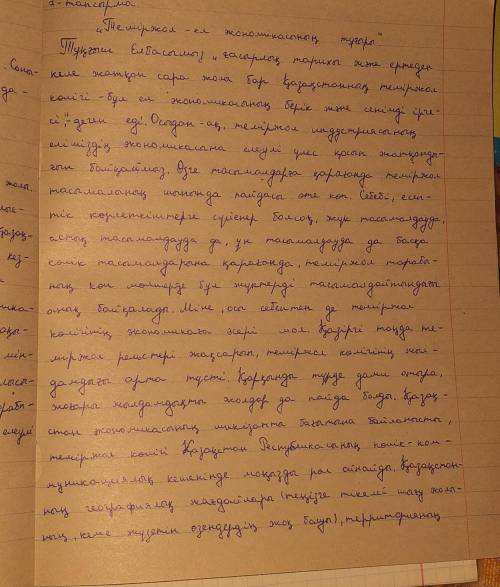 2-тапсырма.
"Теміржол - ел экономикасының тұғыры"
Тұңғыш Елбасымыз „ғасырлық тарихы және ертеден
келе жатқан сара жолы бар Қазақстанның теміржол
көлігі - бұл ел экономикасының берік және сенімді ірге-
сі", - деген еді. Осыдан-ақ, теміржол индустриясының
еліміздің экономикасына елеулі үлес қосып жатқанды-
ғын байқаймыз. Өзге тасымалдарға қарағанда теміржол
тасымалының шынында пайдасы өте көп. Себебі, есеп-
тік көрсеткіштерге сүйенер болсоқ, жүк тасымалдауда,
астық тасымалдауда да, ұн тасымалдауда да басқа
көлік тасымалдарына қарағанда, теміржол тарабы-
ның көп мөлшерде бұл жүктерді тасымалдайтындығы
анық байқалады. Міне, осы себептен де теміржол
көлігінің экономикаға әсері мол. Қазіргі таңда те-
міржол рельстері жақсарып, теміржол көлігінің жыл-
дамдығы арта түсті. Қарқынды түрде дами отыра,
жоғары жылдамдықты жолдар да пайда болды. Қазақ-
стан экономикасының шикізатты бағытына байланысты,
теміржол көлігі Қазақстан Республикасының көлік-ком-
муникациялық кешенінде маңызды рөл ойнайды. Қазақстан-
ның географиялық жағдайлары (теңізге тікелей шығу жолы-
ның, кеме жүзетін өзендердің жоқ болуы), территорияның
Соны-
да-
жолы.
қазақ-
кез-
мін-
елеулі